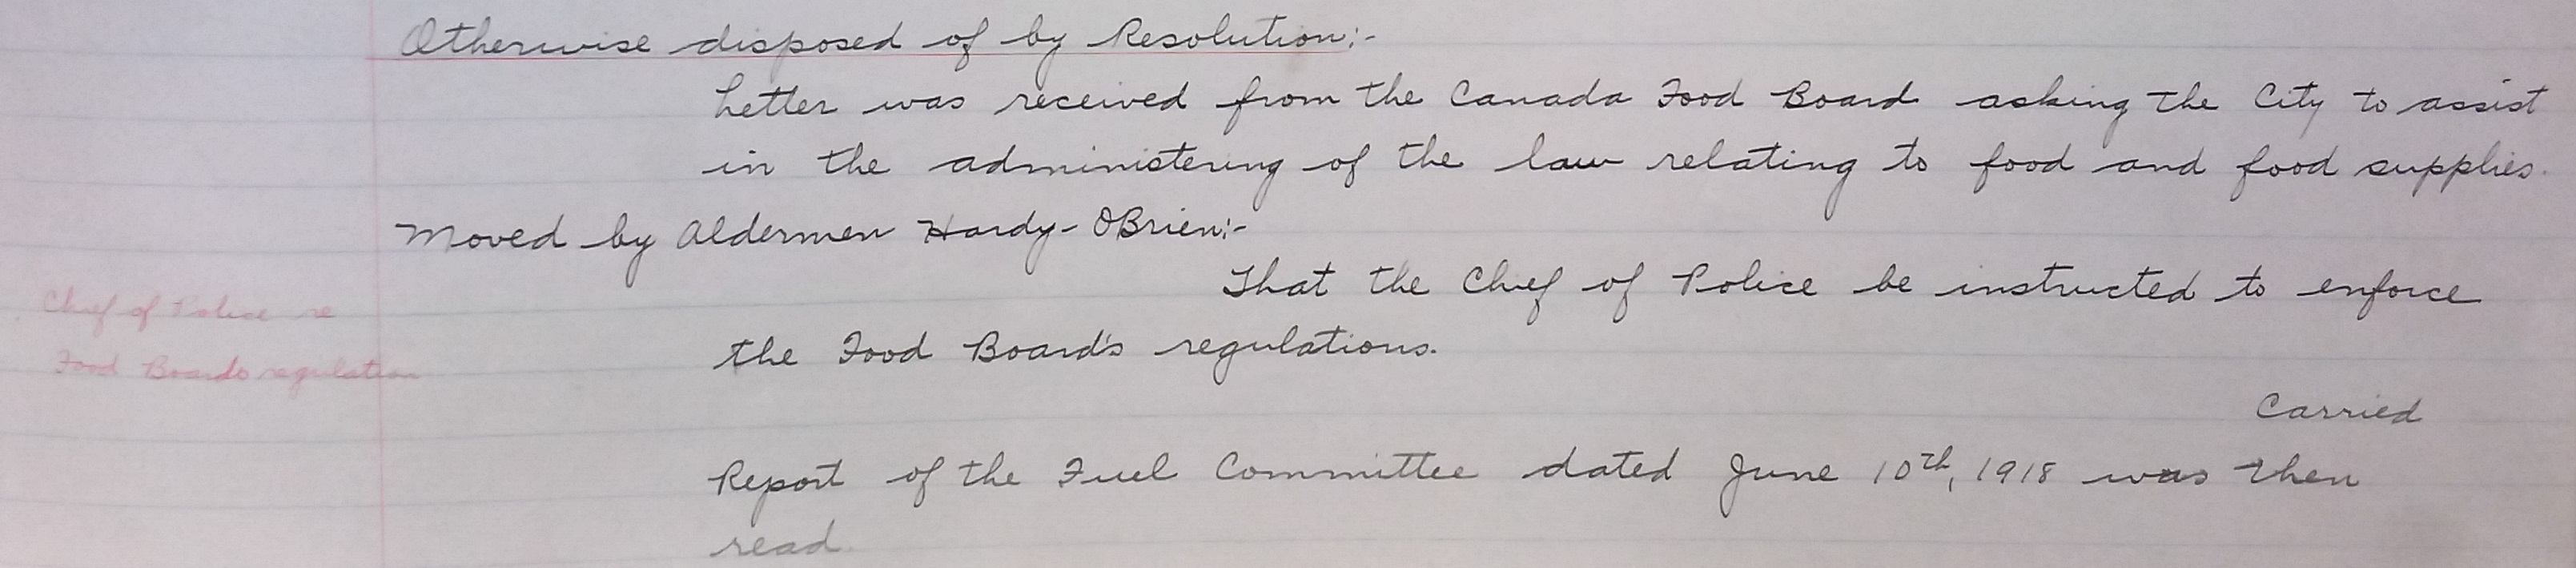 Otherwise disposed of by Resolution:-
Letter was received from the Canada Food Board asking the City to assist
in the administering of the law relating to food and food supplies.
Moved by Aldermen Hardy- OBrien:-
That the Chief of Police be instructed to enforce
Chief of Police re
the Food Board's regulations.
Food Boards regulation
Carried
Report of the Fuel Committee dated June 10th, 1918 was then
read.